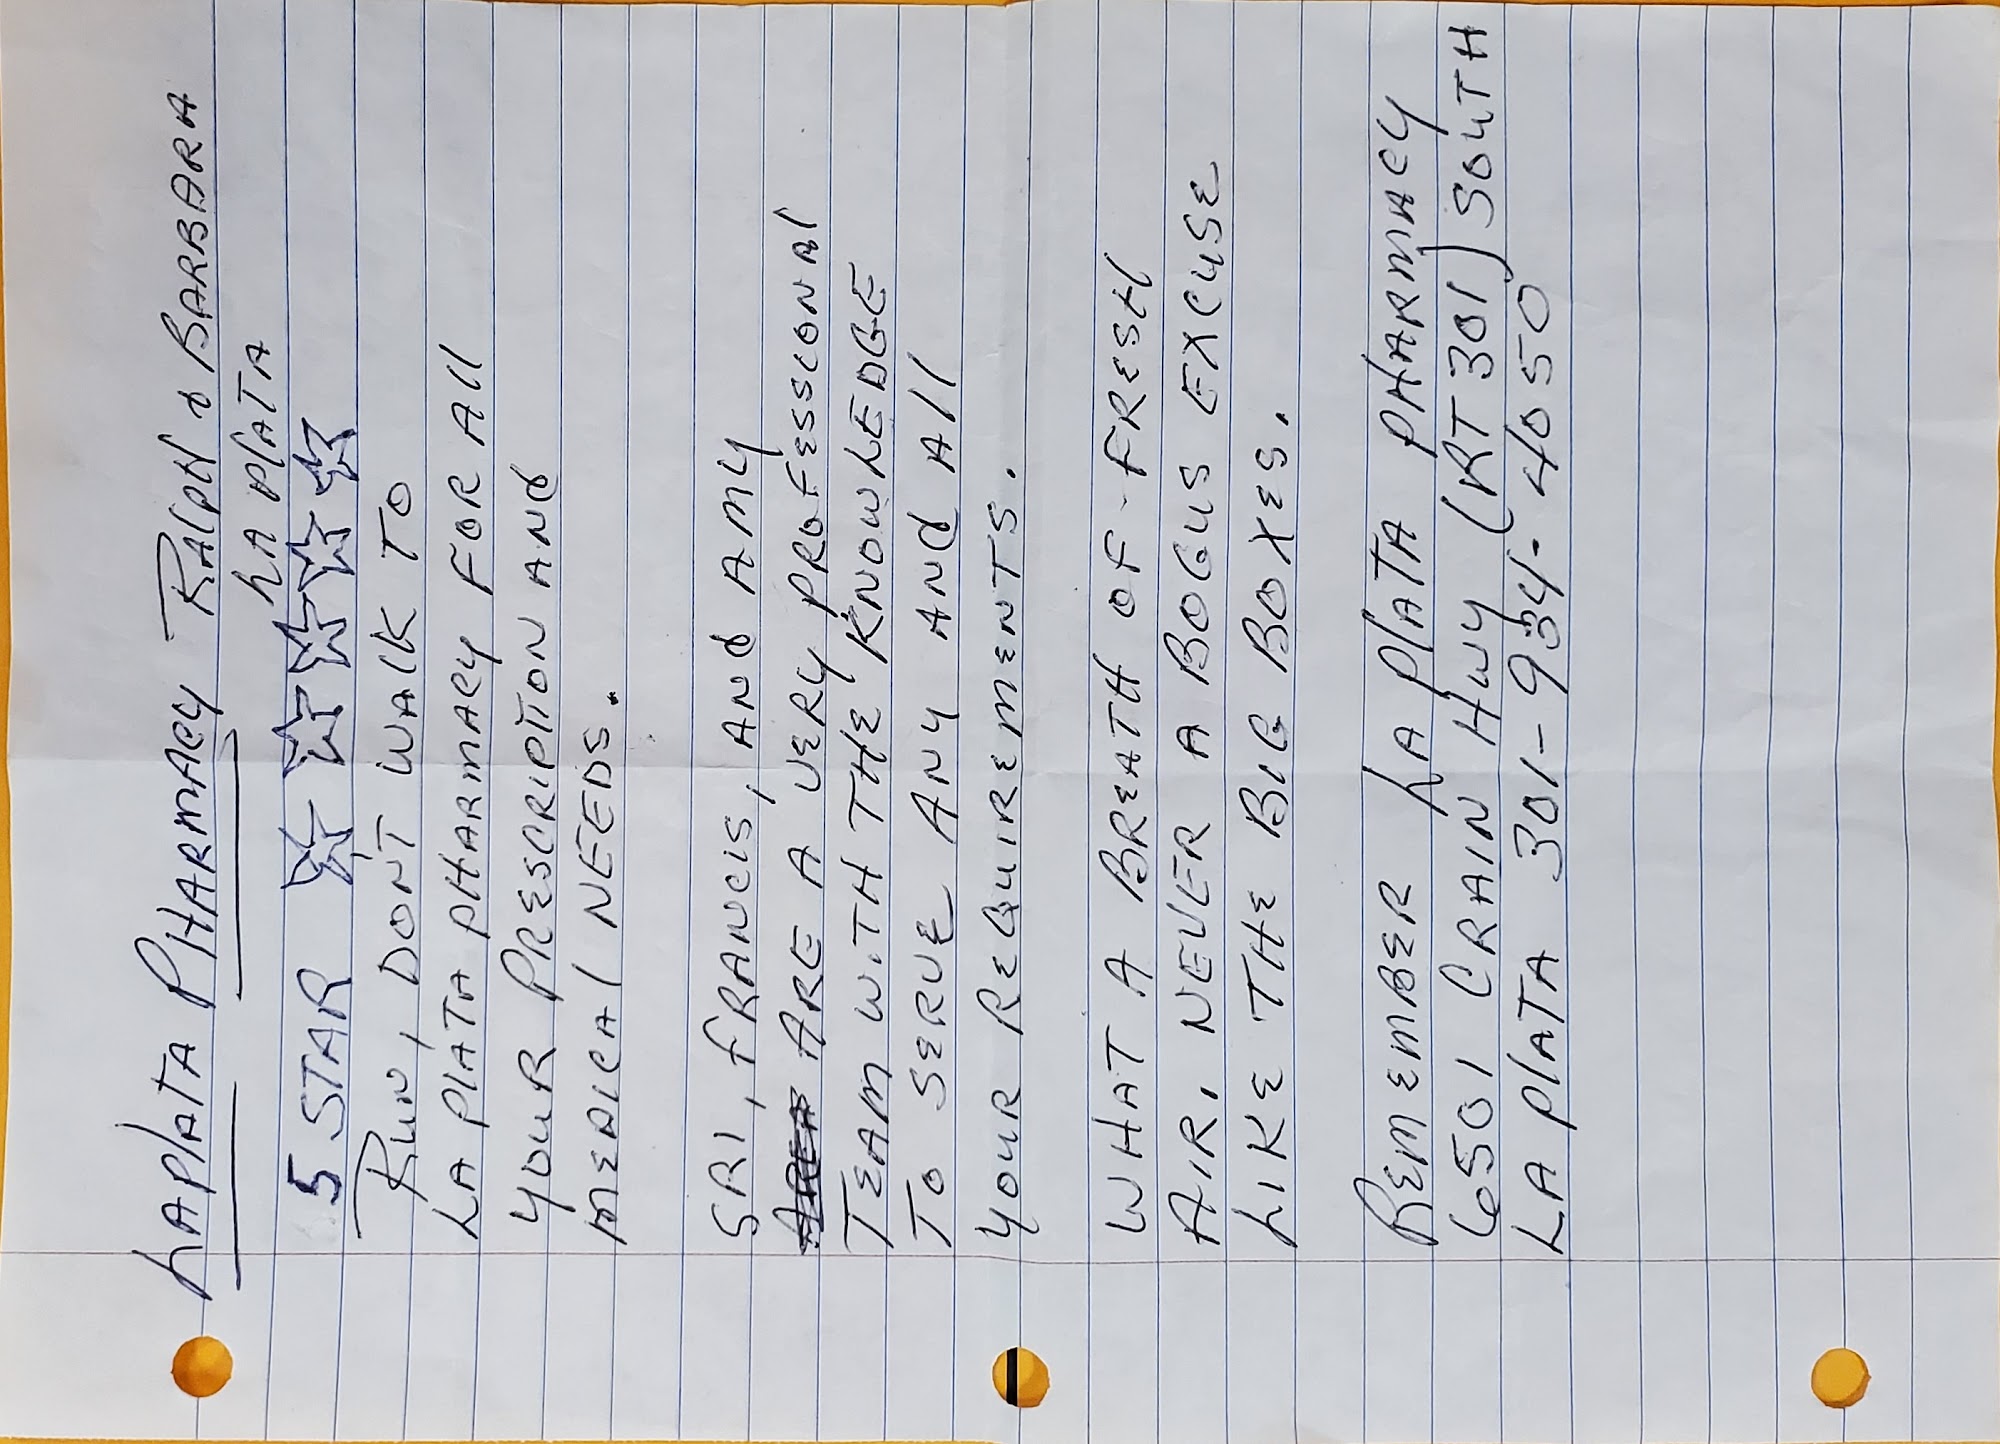 LAPLATA PHARMACY RALPH & BARBARA
LA PLATA
5 STAR
RUN, DON'T WALK TO
LA PLATA PHARMACY FOR ALL
YOUR PRESCRIPTION AND
MEDICAL NEEDS.
SRI, FRANCIS, AND AMY
ARE A VERY PROFESSIONAL
TEAM WITH THE KNOWLEDGE
TO SERVE ANY AND ALL
YOUR REQUIREMENTS.
WHAT A BREATH OF FRESH
AIR, NEVER A BOGUS EXCUSE
LIKE THE BIG BOXES.
REMEMBER LA PLATA PHARMACY
6501 CRAIN HWY (RT 301) SOUTH
LA PLATA 301-934-4050